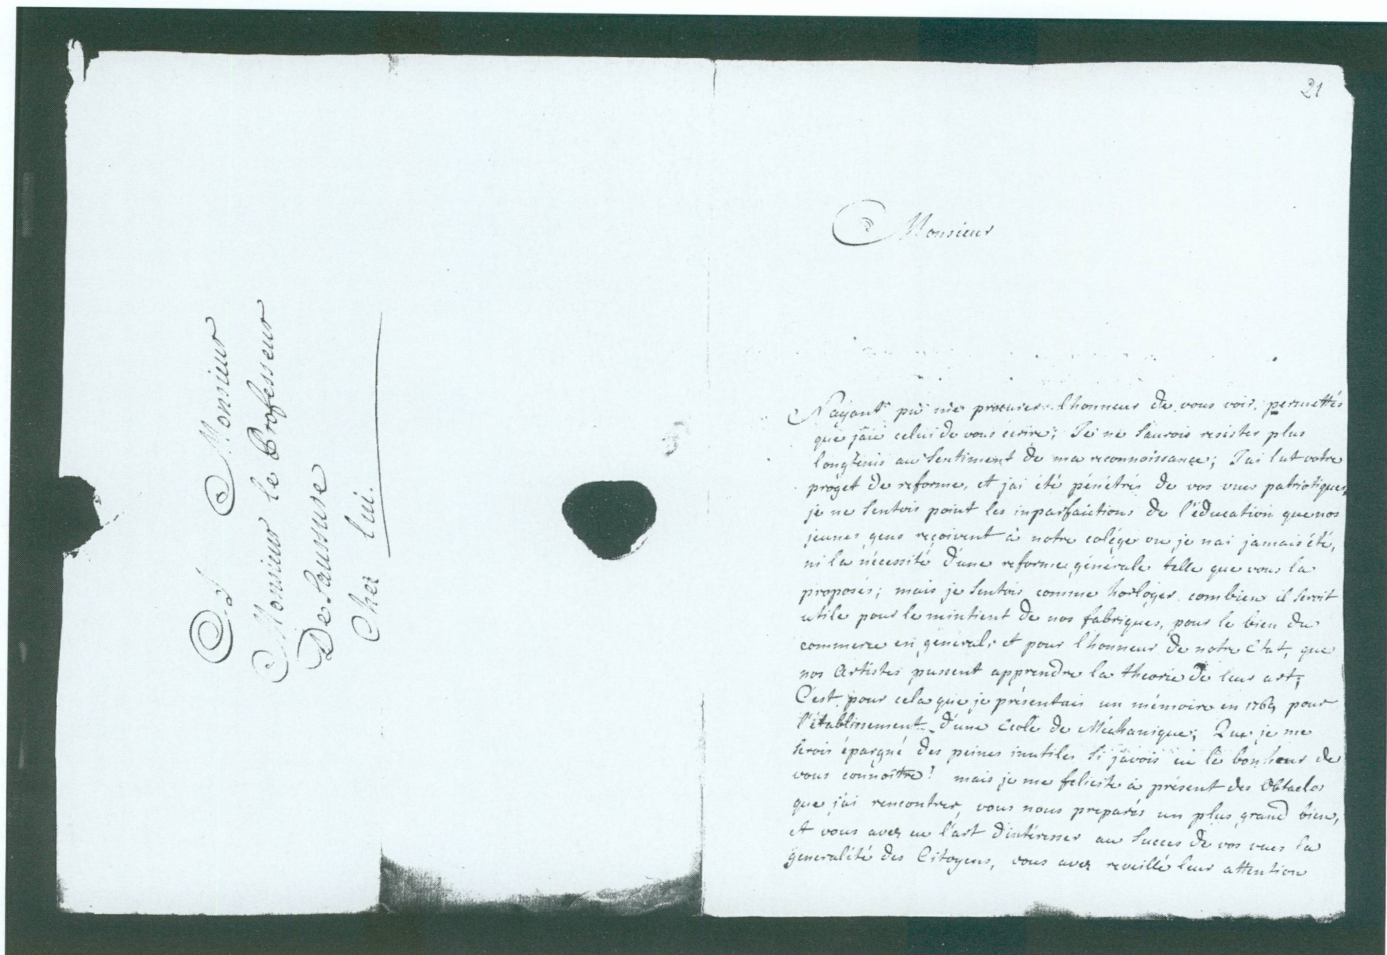 A Monsieur
Monsieur le Professeur
De Saussure
Chez lui.
21
Monsieur
N'ayant pû me procurer l'honneur de vous voir, permettés
que j'aie celui de vous écrire; Je ne saurois resister plus
longtems au sentiment de ma reconnoissance; J'ai lut votre
proget de reforme, et j'ai été pénétrés de vos vues patriotiques,
je ne sentois point les inparfaictions de l'éducation que nos
jeunes gens reçoivent à notre colége ou je n'ai jamais été,
ni la nécessité d'une reforme générale telle que vous la
proposés; mais je sentois comme horloger combien il seroit
utile pour le mintient de nos fabriques, pour le bien du
commerce en général, et pour l'honneur de notre Etat, que
nos Artistes pussent apprendre la theorie de leur art;
C'est pour cela que je présentais un mémoire en 1769 pour
l'établissement d'une Ecole de Méchanique; Que je me
serois épargné des peines inutiles si j'avois eu le bonheur de
vous connoître! mais je me felicite à présent des Obtacles
que j'ai rencontrer, vous nous preparés un plus grand bien,
et vous avez eu l'art d'intéresser au succes de vos vues la
généralité des Citoyens, vous avez reveillé leur attention